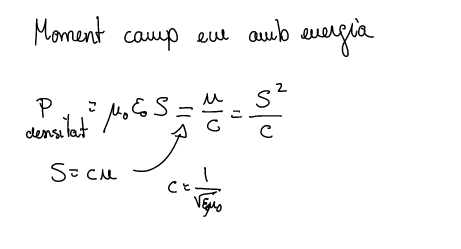 Moment camp em amb energia
P densitat = μ₀ε₀S = u/c = S²/c
S = cu
c = 1/√ε₀μ₀